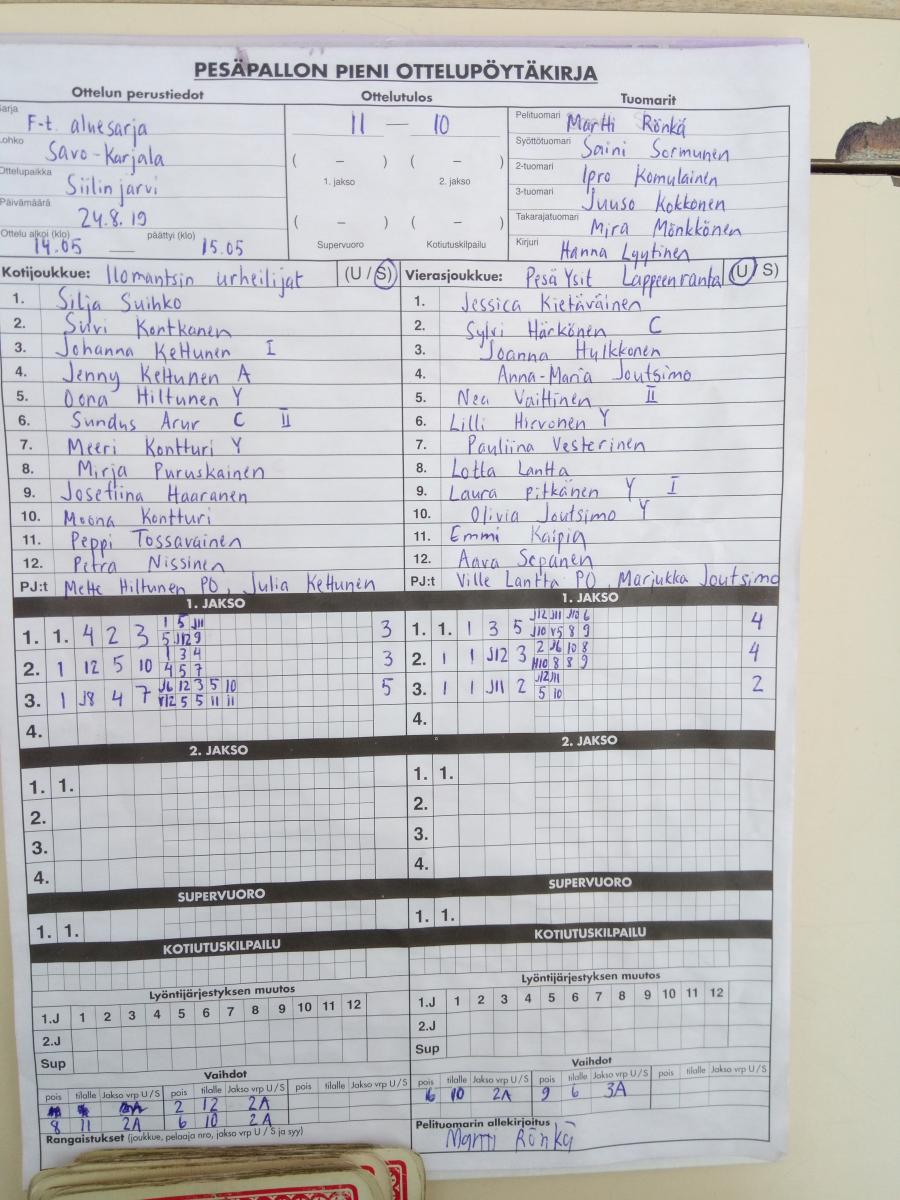 PESÄPALLON PIENI OTTELUPÖYTÄKIRJA
Ottelun perustiedot
Ottelutulos
Tuomarit
Sarja F-t. aluesarja
Lohko Savo-Karjala
Ottelupaikka Siilinjärvi
Päivämäärä 24.8.19
Ottelu alkoi (klo) päättyi (klo)
14.05 — 15.05
11 — 10
( – ) ( – )
1. jakso 2. jakso
( – ) ( – )
Supervuoro Kotiutuskilpailu
Pelituomari Martti Rönkä
Syöttötuomari Saini Sormunen
2-tuomari Ipro Komulainen
3-tuomari Juuso Kokkonen
Takarajatuomari Mira Mönkkönen
Kirjuri Hanna Lyytinen
Kotijoukkue: Ilomantsin urheilijat (U / S)
1. Silja Suihko
2. Suvi Kontkanen
3. Johanna Kettunen I
4. Jenny Kettunen A
5. Oona Hiltunen Y
6. Sundus Arur C II
7. Meeri Kontturi Y
8. Mirja Puruskainen
9. Josefiina Haaranen
10. Moona Kontturi
11. Peppi Tossavainen
12. Petra Nissinen
PJ:t Mette Hiltunen PO, Julia Kettunen
Vierasjoukkue: Pesä Ysit Lappeenranta (U / S)
1. Jessica Kietäväinen
2. Sylvi Härkönen C
3. Joanna Hylkkonen
4. Anna-Maria Joutsimo
5. Nea Vaittinen II
6. Lilli Hirvonen Y
7. Pauliina Vesterinen
8. Lotta Lantta
9. Laura Pitkänen Y I
10. Olivia Joutsimo Y
11. Emmi Kaipia
12. Aava Sepänen
PJ:t Ville Lantta PO, Marjukka Joutsimo
1. JAKSO
1. 1. 4 2 3 1 5 J11 3
5 J12 9
2. 1 12 5 10 1 3 4 3
4 5 7
3. 1 J8 4 7 J6 12 3 5 10 5
V12 5 5 11 11
4.
2. JAKSO
1. 1.
2.
3.
4.
SUPERVUORO
1. 1.
KOTIUTUSKILPAILU
Lyöntijärjestyksen muutos
1.J 1 2 3 4 5 6 7 8 9 10 11 12
2.J
Sup
Vaihdot
pois tilalle Jakso vrp U / S pois tilalle Jakso vrp U / S pois tilalle Jakso vrp U / S
2 12 2A
8 11 2A 6 10 2A
Rangaistukset (joukkue, pelaaja nro, jakso vrp U / S ja syy)
1. JAKSO
1. 1. 1 3 5 J12 J11 J10 6 4
J10 V5 8 9
2. 1 1 J12 3 2 J6 10 8 4
H10 8 8 9
3. 1 1 J11 2 J12 J11 2
5 10
4.
2. JAKSO
1. 1.
2.
3.
4.
SUPERVUORO
1. 1.
KOTIUTUSKILPAILU
Lyöntijärjestyksen muutos
1.J 1 2 3 4 5 6 7 8 9 10 11 12
2.J
Sup
Vaihdot
pois tilalle Jakso vrp U / S pois tilalle Jakso vrp U / S pois tilalle Jakso vrp U / S
6 10 2A 9 6 3A
Pelituomarin allekirjoitus
Martti Rönkä